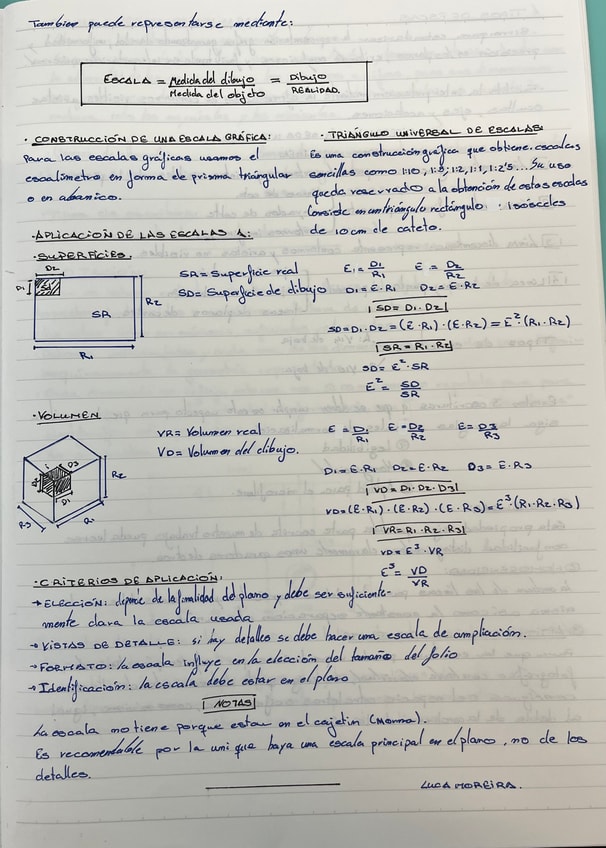 Tambien puede representarse mediante:
ESCALA = Medida del dibujo / Medida del objeto = Dibujo / REALIDAD.
· CONSTRUCCIÓN DE UNA ESCALA GRÁFICA:
Para las escalas gráficas usamos el
escalímetro en forma de prisma triángular
o en abanico.
· TRIÁNGULO UNIVERSAL DE ESCALAS:
Es una construcción gráfica que obtiene escalas
sencillas como 1:10, 1:5, 1:2, 1:1, 1:2'5... Su uso
queda reservado a la obtención de estas escalas
Consiste en un triángulo rectángulo isósceles
de 10 cm de cateto.
· APLICACIÓN DE LAS ESCALAS
· SUPERFICIES.
D2
D1
SR
R2
R1
SR = Superficie real
SD = Superficie de dibujo
E = D1/R1 E = D2/R2
D1 = E·R1 D2 = E·R2
SD = D1·D2
SD = D1·D2 = (E·R1)·(E·R2) = E²·(R1·R2)
SR = R1·R2
SD = E²·SR
E² = SD/SR
· VOLUMEN
D2
D3
D1
R2
R3
R1
VR = Volumen real
VD = Volumen del dibujo.
E = D1/R1 E = D2/R2 E = D3/R3
D1 = E·R1 D2 = E·R2 D3 = E·R3
VD = D1·D2·D3
VD = (E·R1)·(E·R2)·(E·R3) = E³(R1·R2·R3)
VR = R1·R2·R3
VD = E³·VR
E³ = VD/VR
· CRITERIOS DE APLICACIÓN:
→ ELECCIÓN: depende de la finalidad del plano y debe ser suficiente-
mente clara la escala usada
→ VISTAS DE DETALLE: si hay detalles se debe hacer una escala de ampliación.
→ FORMATO: la escala influye en la elección del tamaño del folio
→ Identificación: la escala debe estar en el plano
NOTAS
La escala no tiene porque estar en el cajetín (Norma).
Es recomendable por la uni que haya una escala principal en el plano, no de los
detalles.
LUCA MOREIRA.